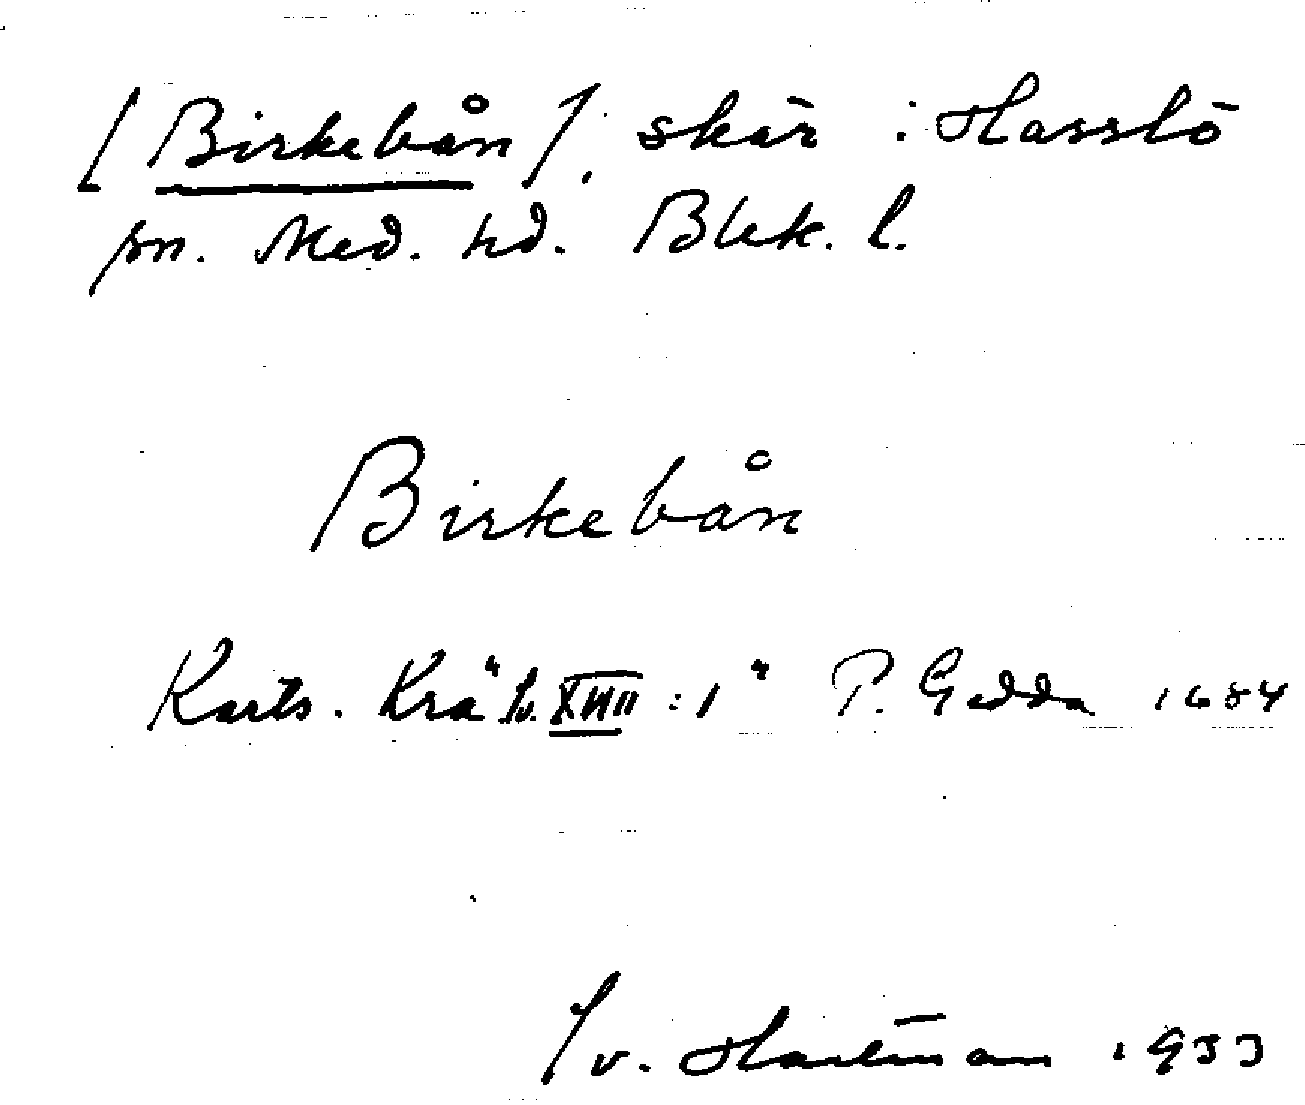 [Birkebån]; skär i Hasslö
sn. Med. hd. Blek. l.
Birkebån
Karts. Krå "Sv. XVIII : 1" P. Gedda 1684
Sv. Hartman 1933